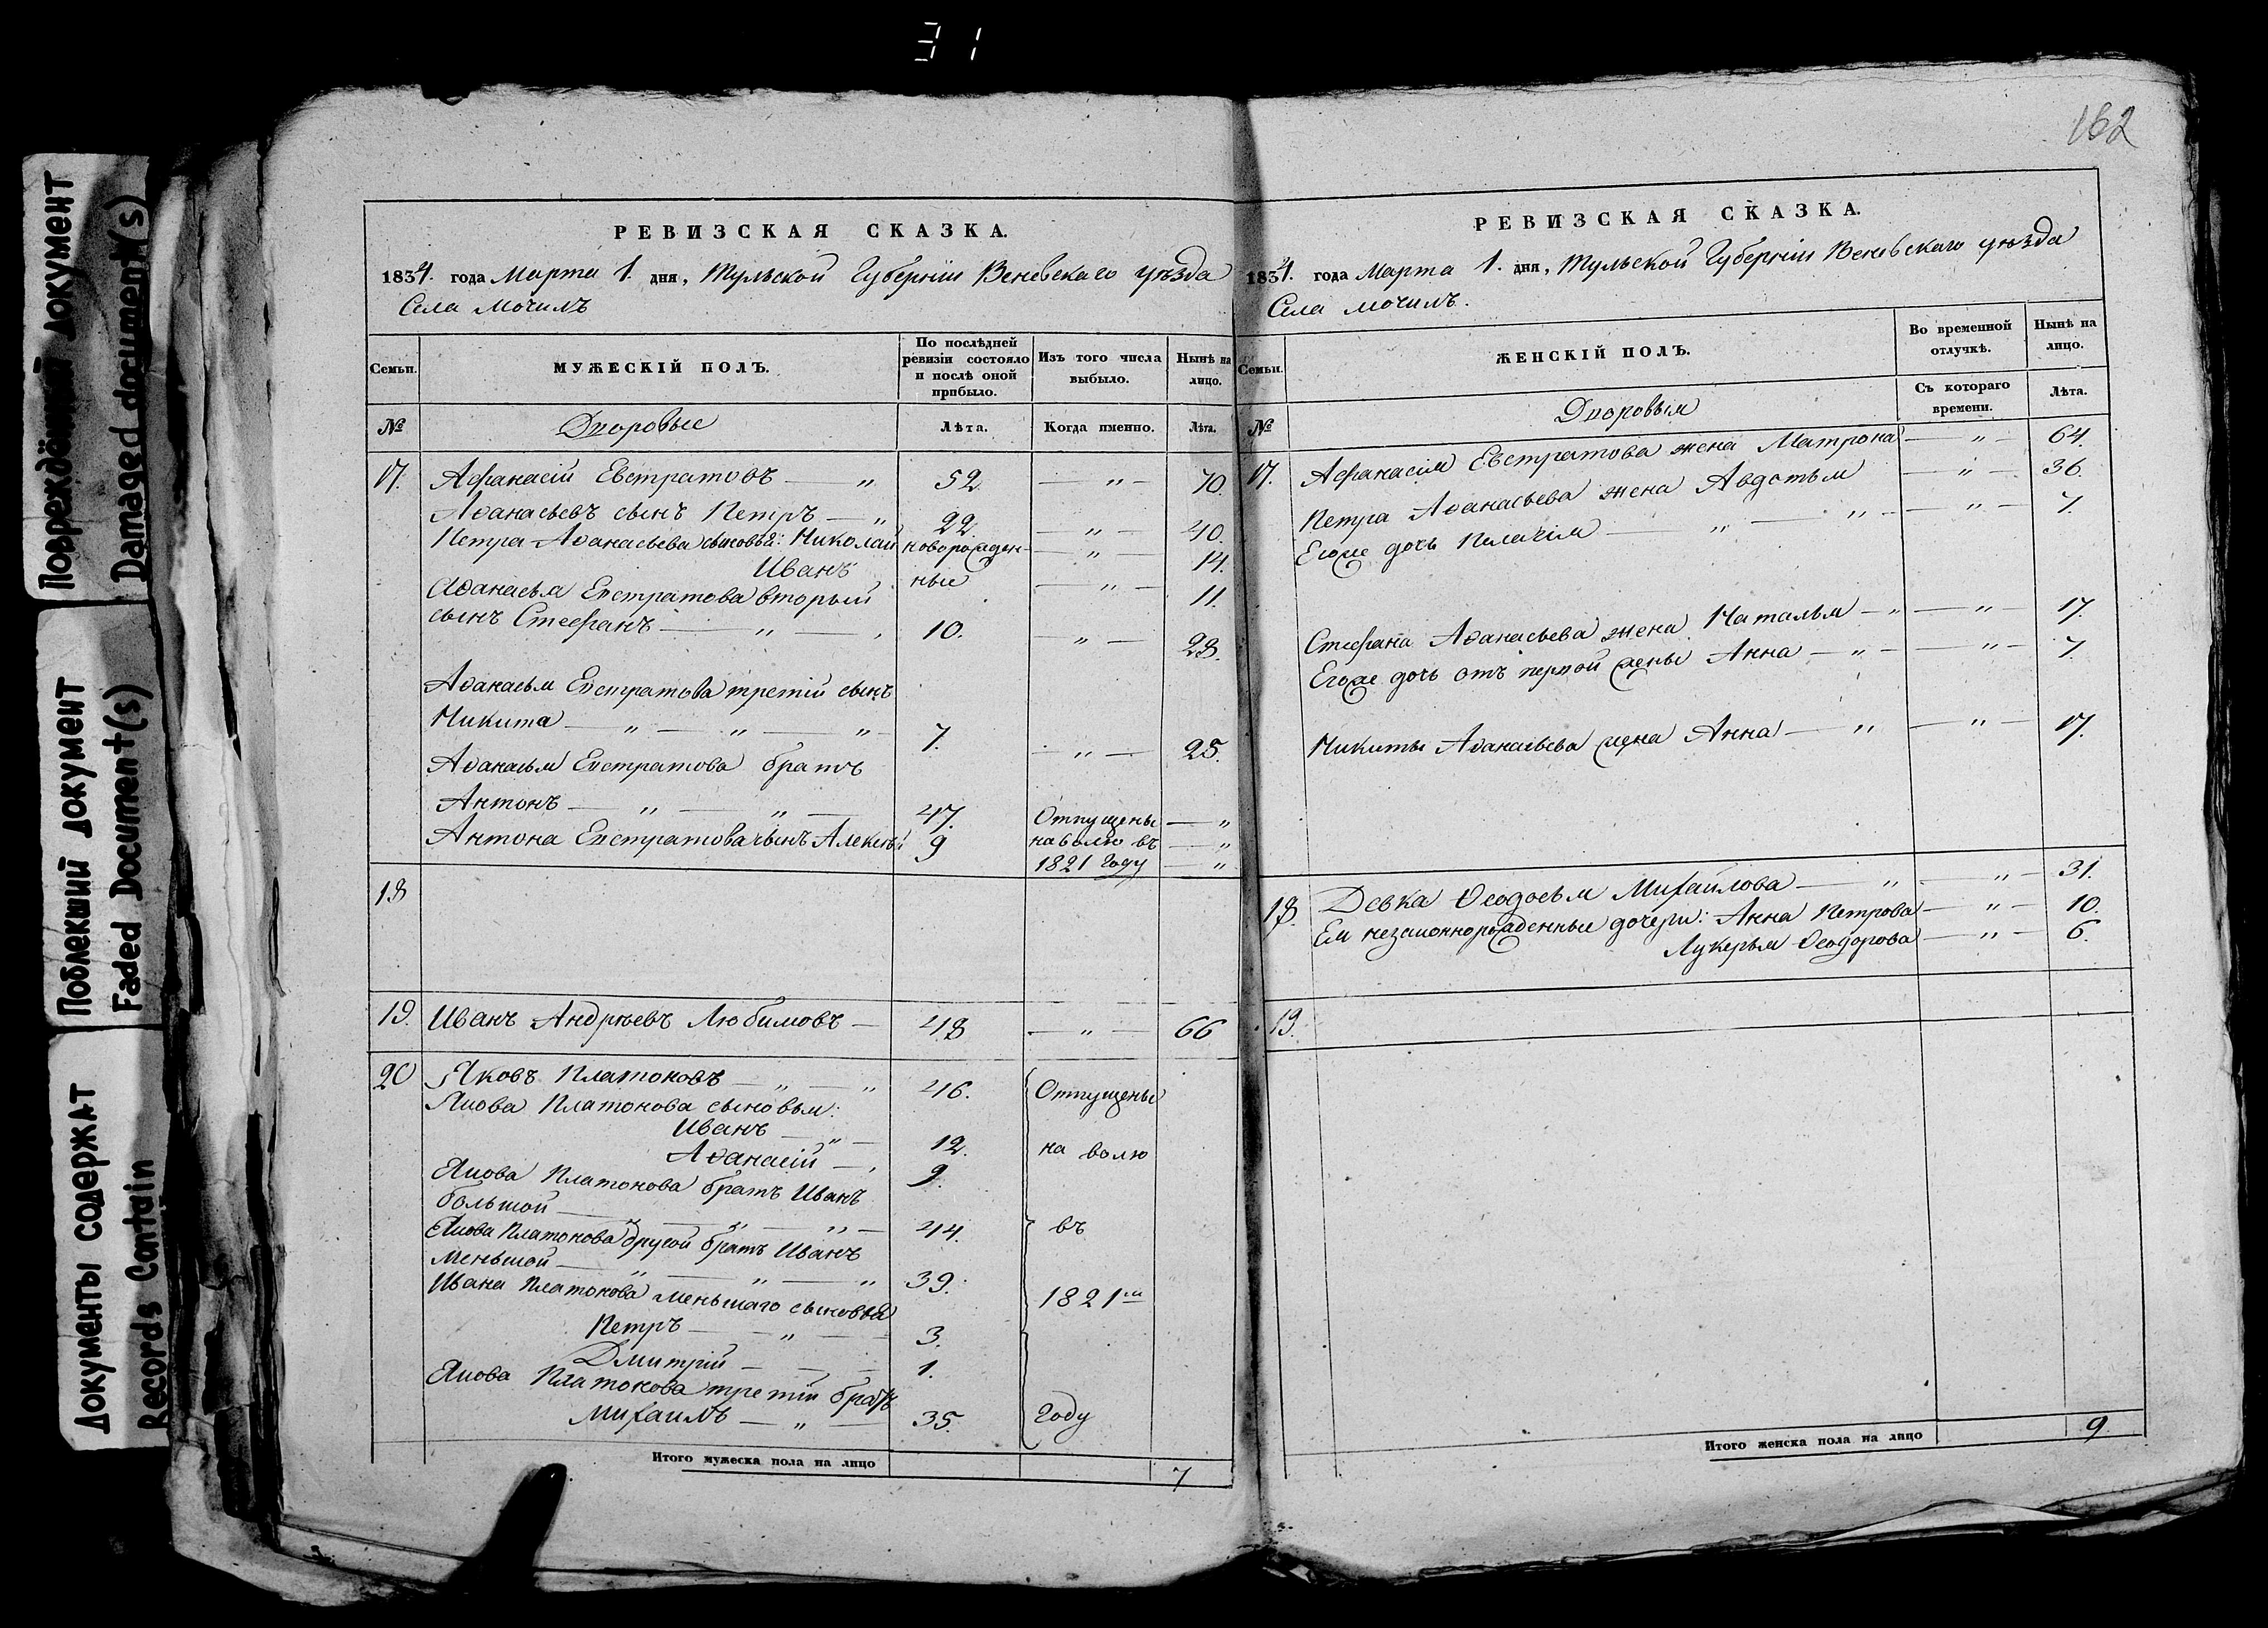 31
162
Повреждённый документ
Damaged document(s)
Поблекший документ
Faded Document(s)
Документы содержат
Records Contain
РЕВИЗСКАЯ СКАЗКА.
1834. года Марта 1. дня, Тульской Губерніи Веневскаго уѣзда
Села Мочилъ
Семьи.
МУЖЕСКІЙ ПОЛЪ.
По послѣдней
ревизіи состояло
и послѣ оной
прибыло.
Изъ того числа
выбыло.
Нынѣ на
лицо.
№
Дворовые
Лѣта.
Когда именно.
Лѣта.
17. Афанасій Евстратовъ — „ 52 — „ — 70.
Аѳанасьевъ сынъ Петръ — „ 22. — „ — 40.
Петра Аѳанасьева сыновья: Николай новорожден- — „ — 14.
Иванъ ные — „ — 11.
Аѳанасья Евстратова вторый
сынъ Стефанъ — „ — 10. „ — 28.
Аѳанасья Евстратова третій сынъ
Никита — „ — „ — „ 7. „ — 25.
Аѳанасья Евстратова братъ
Антонъ — „ — „ — 47. Отпущены — „
Антона Евстратова сынъ Алексѣй 9 на волю въ — „
1821 году — „
18
19. Иванъ Андрѣевъ Любимовъ — 48 — „ — 66
20 Яковъ Платоновъ — „ — „ 46. Отпущены
Якова Платонова сыновья:
Иванъ — „ — 12. на волю
Аѳанасій — „ 9.
Якова Платонова братъ Иванъ
большой — „ — „ — „ — 44. въ
Якова Платонова другой братъ Иванъ
меньшой — „ — „ — „ 39.
Ивана Платонова меньшаго сыновья 1821мъ
Петръ — „ — 3.
Дмитрій — — — 1.
Якова Платонова третій братъ
Михаилъ — „ — 35. году
Итого мужеска пола на лицо 7
РЕВИЗСКАЯ СКАЗКА.
1834. года Марта 1. дня, Тульской Губерніи Веневскаго уѣзда
Села Мочилъ.
Семьи.
ЖЕНСКІЙ ПОЛЪ.
Во временной
отлучкѣ.
Нынѣ на
лицо.
Съ котораго
времени.
Лѣта.
№
Дворовыя
17. Афанасія Евстратова жена Матрона — „ — 64.
Петра Аѳанасьева жена Авдотья — „ — 36.
Егоже дочь Пелагія — „ — „ — — „ — 7.
Стефана Аѳанасьева жена Наталья — „ — „ — 17.
Егоже дочь отъ первой жены Анна — „ — — „ — 7.
Никиты Аѳанасьева жена Анна — „ — „ — 17.
18. Девка Ѳеодосья Михайлова — „ — „ — 31.
Ея незаконнорожденные дочери: Анна Петрова — „ — 10.
Лукерья Ѳеодорова — „ — 6.
19.
Итого женска пола на лицо 9